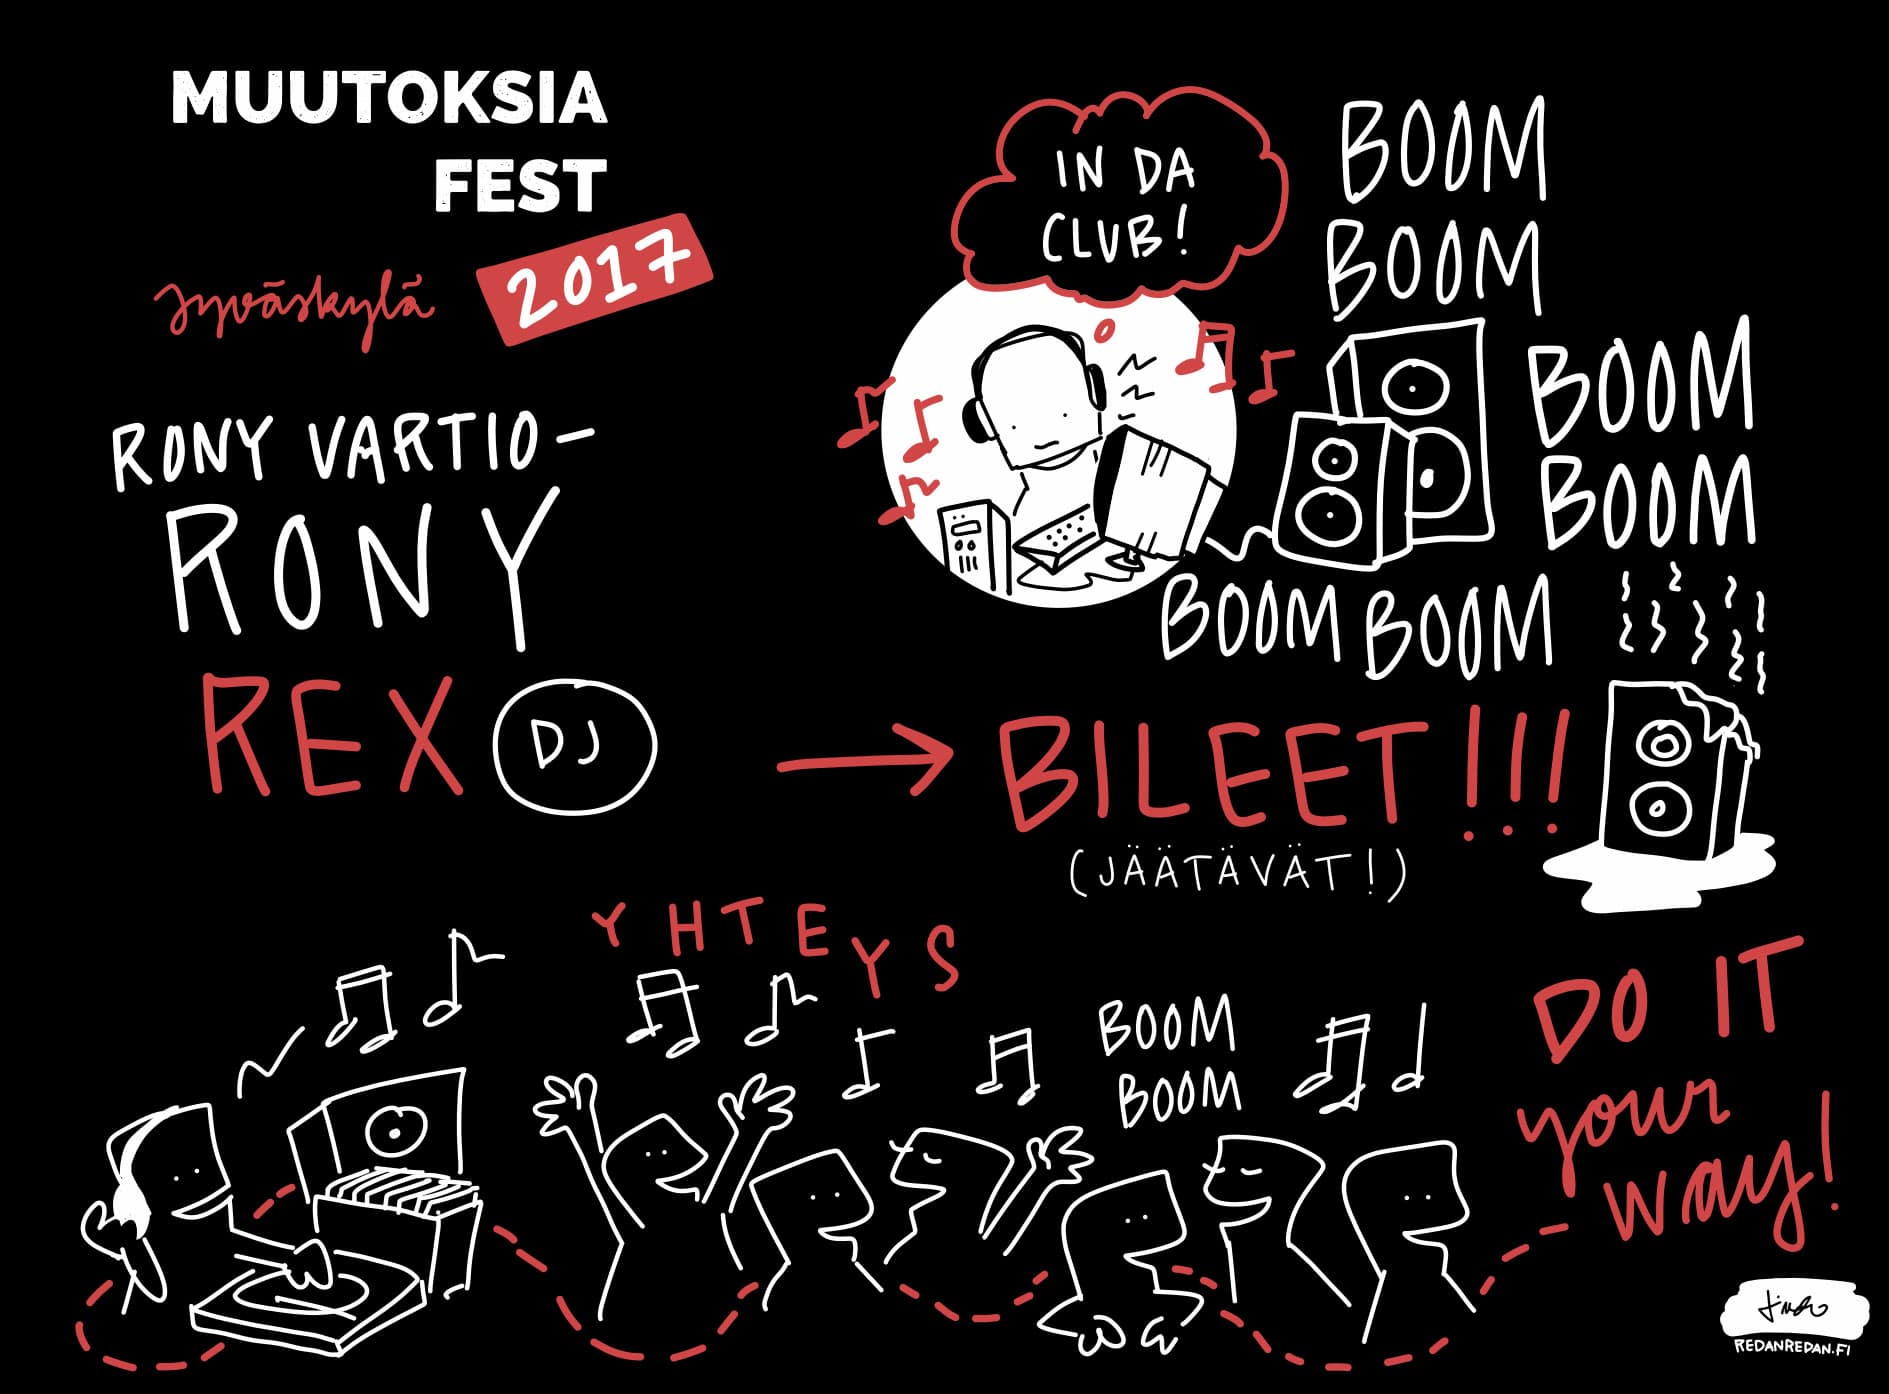 MUUTOKSIA
FEST
Jyväskylä
2017
RONY VARTIO-
RONY
REX
DJ
IN DA
CLUB!
BOOM
BOOM
BOOM
BOOM
BOOM BOOM
BILEET!!!
(JÄÄTÄVÄT!)
YHTEYS
BOOM
BOOM
DO IT
your
way!
REDANREDAN.FI